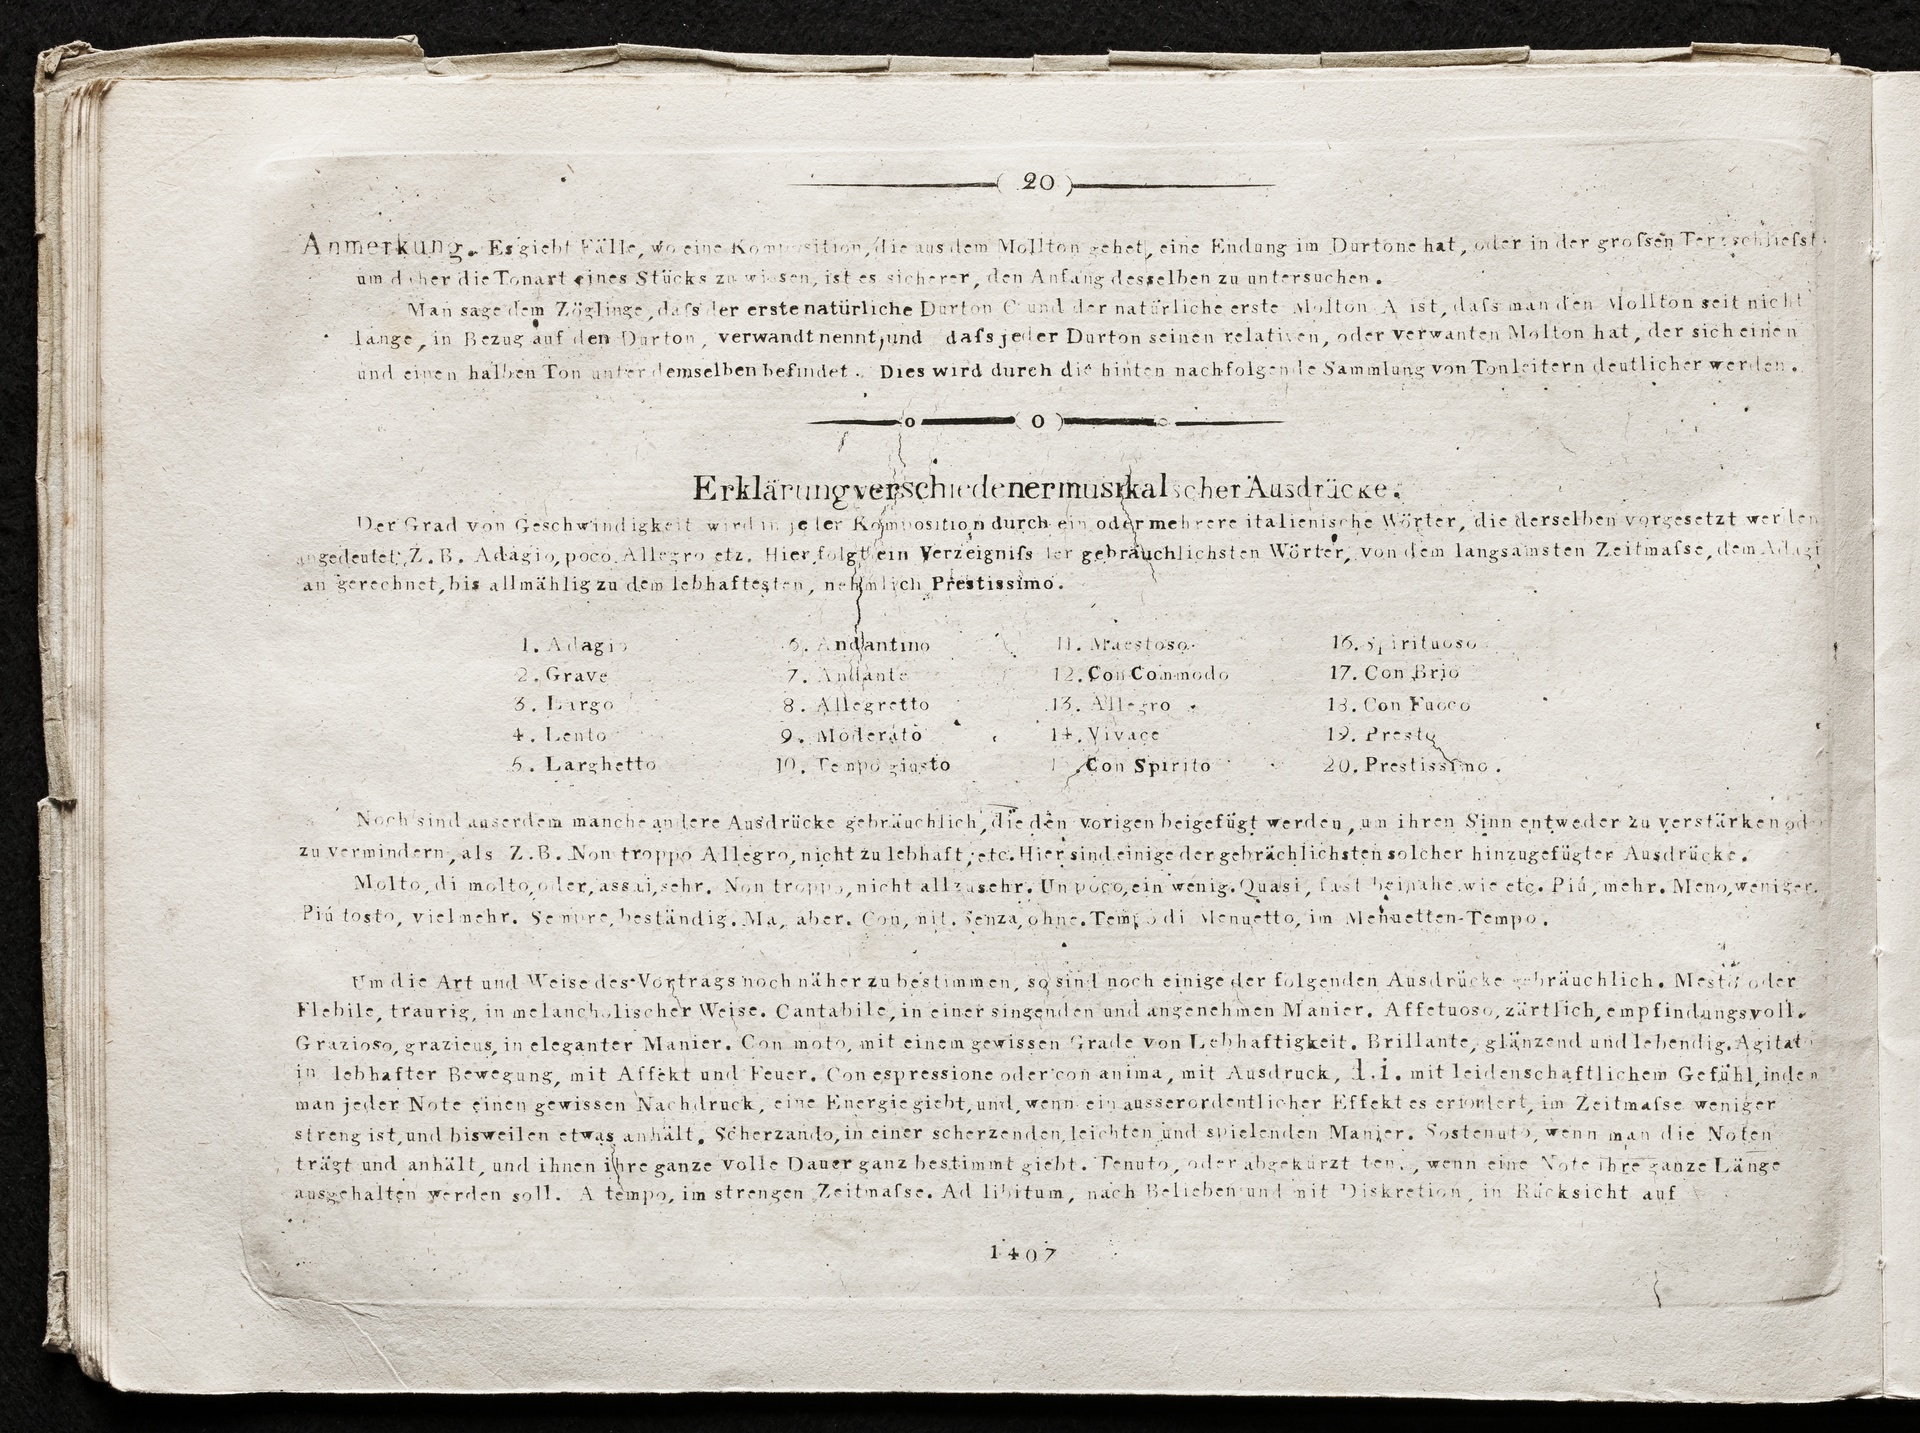 ( 20 )
Anmerkung. Es giebt Fälle, wo eine Komposition, die aus dem Mollton gehet, eine Endung im Durtone hat, oder in der groſsen Terz schlieſst,
um daher die Tonart eines Stücks zu wissen, ist es sicherer, den Anfang desselben zu untersuchen.
Man sage dem Zöglinge, daſs der erste natürliche Durton C und der natürliche erste Molton A ist, daſs man den Mollton seit nicht
lange, in Bezug auf den Durton, verwandt nennt, und daſs jeder Durton seinen relativen, oder verwanten Molton hat, der sich einen
und einen halben Ton unter demselben befindet. Dies wird durch die hinten nachfolgende Sammlung von Tonleitern deutlicher werden.
( 0 )
Erklärung verschiedener musikalscher Ausdrücke.
Der Grad von Geschwindigkeit wird in jeder Komposition durch ein oder mehrere italienische Wörter, die derselben vorgesetzt werden
angedeutet, Z. B. Adagio, poco Allegro etz. Hier folgt ein Verzeigniſs der gebräuchlichsten Wörter, von dem langsamsten Zeitmaſse, dem Adagi
an gerechnet, bis allmählig zu dem lebhaftesten, nehmlich Prestissimo.
1. Adagio 6. Andantino 11. Maestoso 16. Spirituoso
2. Grave 7. Andante 12. Con Commodo 17. Con Brio
3. Largo 8. Allegretto 13. Allegro 18. Con Fuoco
4. Lento 9. Moderato 14. Vivace 19. Presto
5. Larghetto 10. Tempo giusto 1 Con Spirito 20. Prestissimo.
Noch sind auserdem manche andere Ausdrücke gebräuchlich, die den vorigen beigefügt werden, um ihren Sinn entweder zu verstärken od
zu vermindern, als Z. B. Non troppo Allegro, nicht zu lebhaft, etc. Hier sind einige der gebrächlichsten solcher hinzugefügter Ausdrücke.
Molto, di molto, oder, assai, sehr. Non troppo, nicht allzusehr. Un poco, ein wenig. Quasi, fast beinahe wie etc. Piú, mehr. Meno, weniger.
Piú tosto, vielmehr. Sempre, beständig. Ma, aber. Con, mit. Senza, ohne. Tempo di Menuetto, im Menuetten-Tempo.
Um die Art und Weise des Vortrags noch näher zu bestimmen, so sind noch einige der folgenden Ausdrücke gebräuchlich. Mesto oder
Flebile, traurig, in melancholischer Weise. Cantabile, in einer singenden und angenehmen Manier. Affetuoso, zärtlich, empfindungsvoll.
Grazioso, grazieus, in eleganter Manier. Con moto, mit einem gewissen Grade von Lebhaftigkeit. Brillante, glänzend und lebendig. Agitato
in lebhafter Bewegung, mit Affekt und Feuer. Con espressione oder con anima, mit Ausdruck, d.i. mit leidenschaftlichem Gefühl, inden
man jeder Note einen gewissen Nachdruck, eine Energie giebt, und, wenn ein ausserordentlicher Effekt es erfordert, im Zeitmaſse weniger
streng ist, und bisweilen etwas anhält. Scherzando, in einer scherzenden, leichten und spielenden Manier. Sostenuto, wenn man die Noten
trägt und anhält, und ihnen ihre ganze volle Dauer ganz bestimmt giebt. Tenuto, oder abgekürzt ten., wenn eine Note ihre ganze Länge
ausgehalten werden soll. A tempo, im strengen Zeitmaſse. Ad libitum, nach Belieben und mit Diskretion, in Rücksicht auf
1407